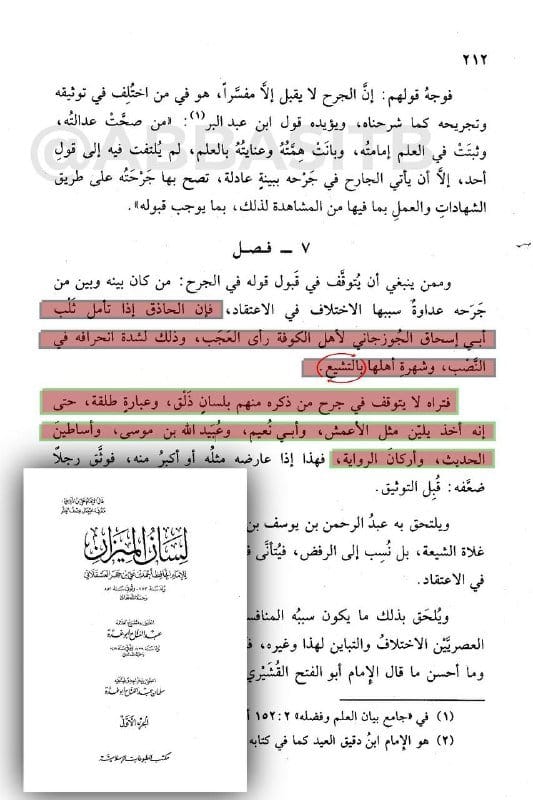 ٢١٢
فوجهُ قولهم: إنَّ الجرح لا يقبل إلَّا مفسَّراً، هو في من اختُلِف في توثيقه
وتجريحه كما شرحناه، ويؤيده قول ابن عبد البر(١): «من صحَّتْ عدالتُه،
وثبتَتْ في العلم إمامتُه، وبانَتْ هِمَّتُه وعنايتُه بالعلم، لم يُلتفت فيه إلى قولِ
أحد، إلَّا أن يأتي الجارح في جَرْحه ببينةٍ عادلة، تصح بها جَرْحَتُه على طريق
الشهاداتِ والعملِ بما فيها من المشاهدة لذلك، بما يوجب قبوله».
٧ ـ فصل
وممن ينبغي أن يُتوقَّف في قَبول قوله في الجرح: من كان بينه وبين من
جَرَحه عداوةٌ سببها الاختلاف في الاعتقاد، فإن الحاذق إذا تأمل ثَلْب
أبي إسحاق الجُوزجاني لأهل الكوفة رأى العَجَب، وذلك لشدة انحرافه في
النَّصْب، وشهرةِ أهلها بالتشيع.
فتراه لا يتوقف في جرح من ذكره منهم بلسانٍ ذَلْق، وعبارةٍ طلقة، حتى
إنه أخذ يليّن مثل الأعمش، وأبي نُعيم، وعُبَيد الله بن موسى، وأساطينَ
الحديث، وأركانَ الرواية، فهذا إذا عارضه مثلُه أو أكبرُ منه، فوثَّق رجلاً
ضعَّفه: قُبِل التوثيق.
ويلتحق به عبدُ الرحمن بن يوسف بن
غلاة الشيعة، بل نُسِب إلى الرفض، فيُتأنَّى ف
في الاعتقاد.
ويُلحَق بذلك ما يكون سببُه المنافس
العصريَّيْن الاختلافُ والتباين لهذا وغيره، ف
وما أحسن ما قال الإمام أبو الفتح القُشَيْري
(١) في «جامع بيان العلم وفضله» ٢:١٥٢
(٢) هو الإمام ابنُ دقيق العيد كما في كتابه
لسان الميزان
للإمام الحافظ أحمد بن علي بن حجر العسقلاني
عبد الفتاح أبو غدة
سلمان عبد الفتاح أبو غدة
الجزء الأول
مكتب المطبوعات الإسلامية
@ABBASITB